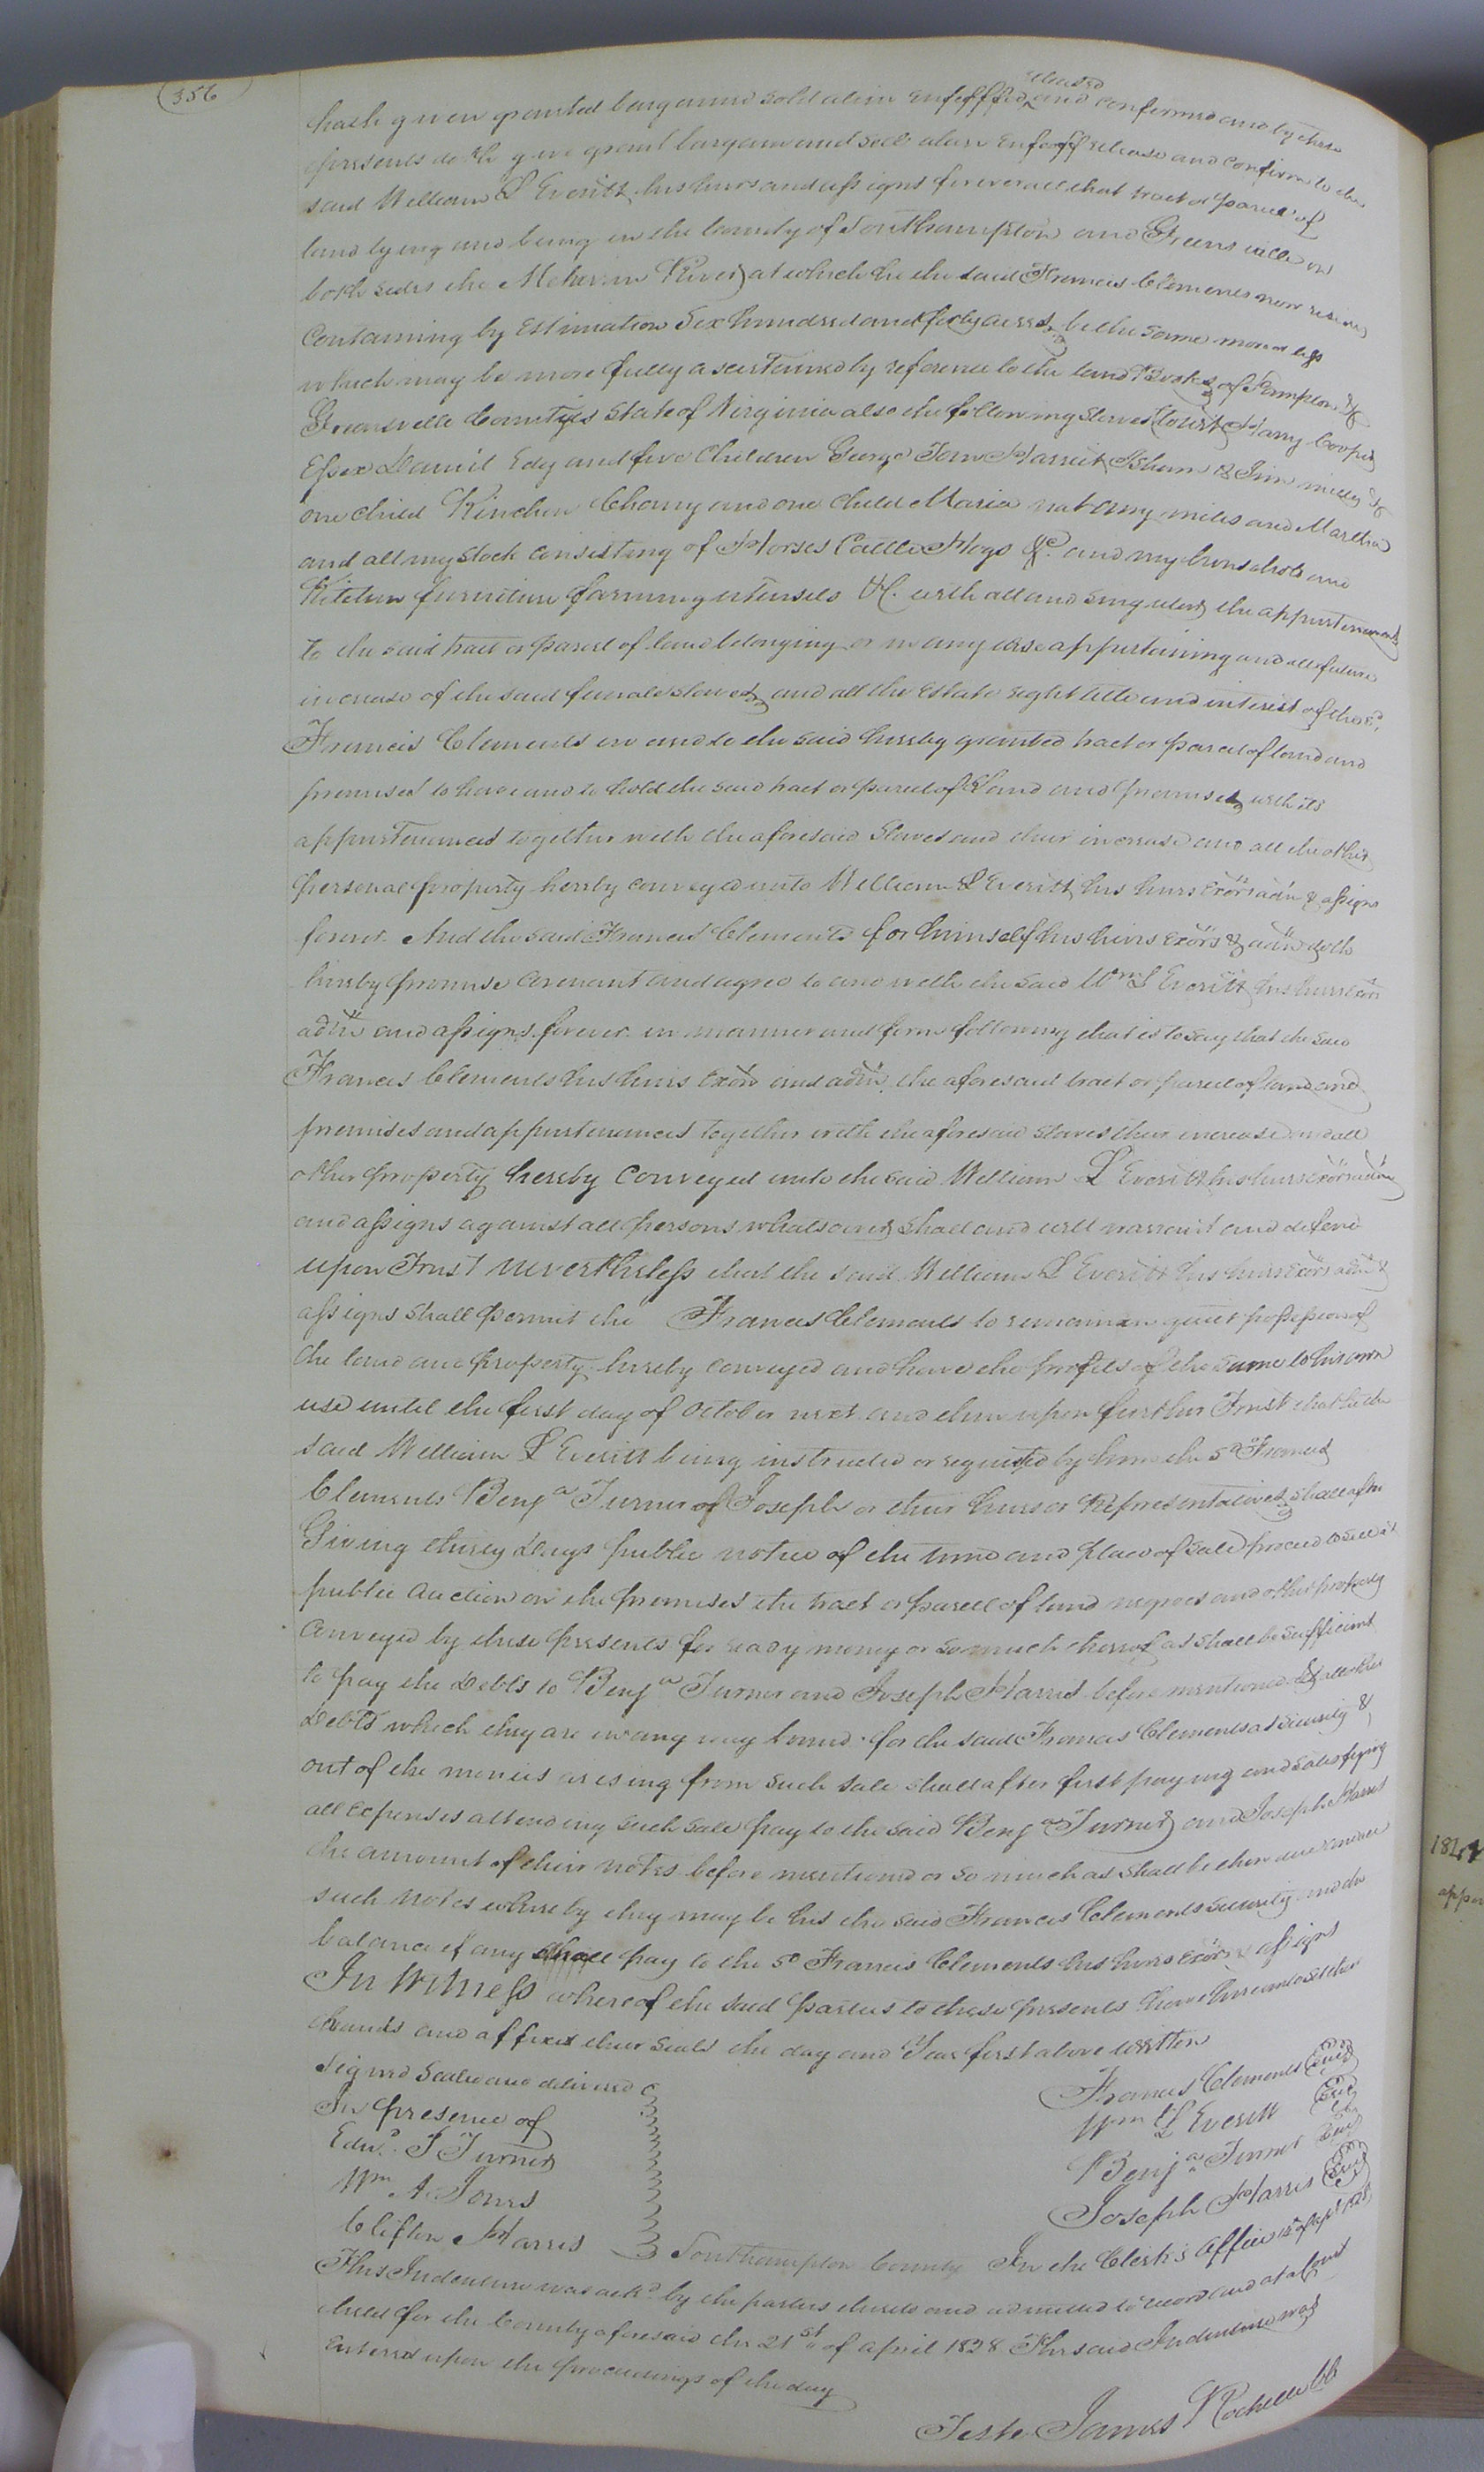 356
released
hath given granted bargained sold alien enfeoffed and confirmed and by these
presents doth give grant bargain and sell alien enfeoff release and confirm to the
said William L Everitt his heirs and assigns forever all that tract or parcel of
land lying and being in the County of Southampton and Greensville on
both sides the Meherrin River at which he the said Francis Clements now resides
Containing by Estimation Six hundred and forty acres be the same more or less
which may be more fully ascertained by reference to the land Books of Hampton &
Greensville Counties State of Virginia also the following slaves (towit) Harry Cooper
Essex Daniel Edy and five Children George Tom Harriet Isham & Jim milly &
one child Kinchen Chany and one Child Maria nat amy miles and Martha
and all my stock consisting of Horses Cattle Hogs &c. and my household and
Kitchen furniture farming utensils &c. with all and singular the appurtenances
to the said tract or parcel of land belonging or in any wise appertaining and all future
increase of the said female slaves and all the Estate right title and interest of the sd.
Francis Clements in and to the said hereby granted tract or parcel of land and
premises to have and to hold the said tract or parcel of Land and premises with its
appurtenances together with the aforesaid Slaves and their increase and all the other
personal property hereby conveyed unto William L Everitt his heirs exors adm & assigns
forever. And the said Francis Clements for himself his heirs exors & adm doth
hereby promise Covenant and agree to and with the said Wm L Everitt his heirs exors
adm and assigns forever in manner and form following that is to say that the said
Francis Clements his heirs Exors and adm. the aforesaid tract or parcel of land and
premises and appurtenances together with the aforesaid slaves their increase and all
other property hereby conveyed unto the said William L Everitt his heirs exors adm
and assigns against all persons whatsoever shall and will warrant and defend
upon Trust nevertheless that the said William L Everitt his heirs exors adm &
assigns shall permit the Francis Clements to remain in quiet possession of
the land and property hereby conveyed and have the profits of the same to his own
use until the first day of October next and then upon further Trust that he the
said William L Everitt being instructed or requested by him the sd Francis
Clements Benja Turner of Joseph or their heirs or Representatives shall after
Giving thirty Days public notice of the time and place of Sale proceed to sell at
public Auction on the premises the tract or parcel of land negroes and other property
Conveyed by these presents for ready money or so much thereof as shall be sufficient
to pay the Debts to Benja Turner and Joseph Harris before mentioned & all other
Debts which they are in any way bound for the said Francis Clements as security &
out of the monies arising from such sale shall after first paying and satisfying
all expenses attending such sale pay to the said Benja Turner and Joseph Harris
the amount of their notes before mentioned or so much as shall be then due
such notes whereby they may be his the said Francis Clements security and the
balance if any shall pay to the sd Francis Clements his heirs exors & assigns
In Witness whereof the said parties to these presents have hereunto set their
hands and affixed their seals the day and Year first above written
Signed Sealed and delivered
In presence of
Edwd. T Turner
Wm A. Jones
Clifton Harris
Francis Clements Seal
Wm L Everitt Seal
Benja Turner Seal
Joseph Harris Seal
Southampton County In the Clerk's Office
This Indenture was ackd by the parties thereto and admitted to record and at a Court
held for the County aforesaid the 21st of April 1828 The said Indenture was
Entered upon the proceedings of the day
Teste James Rochelle CC